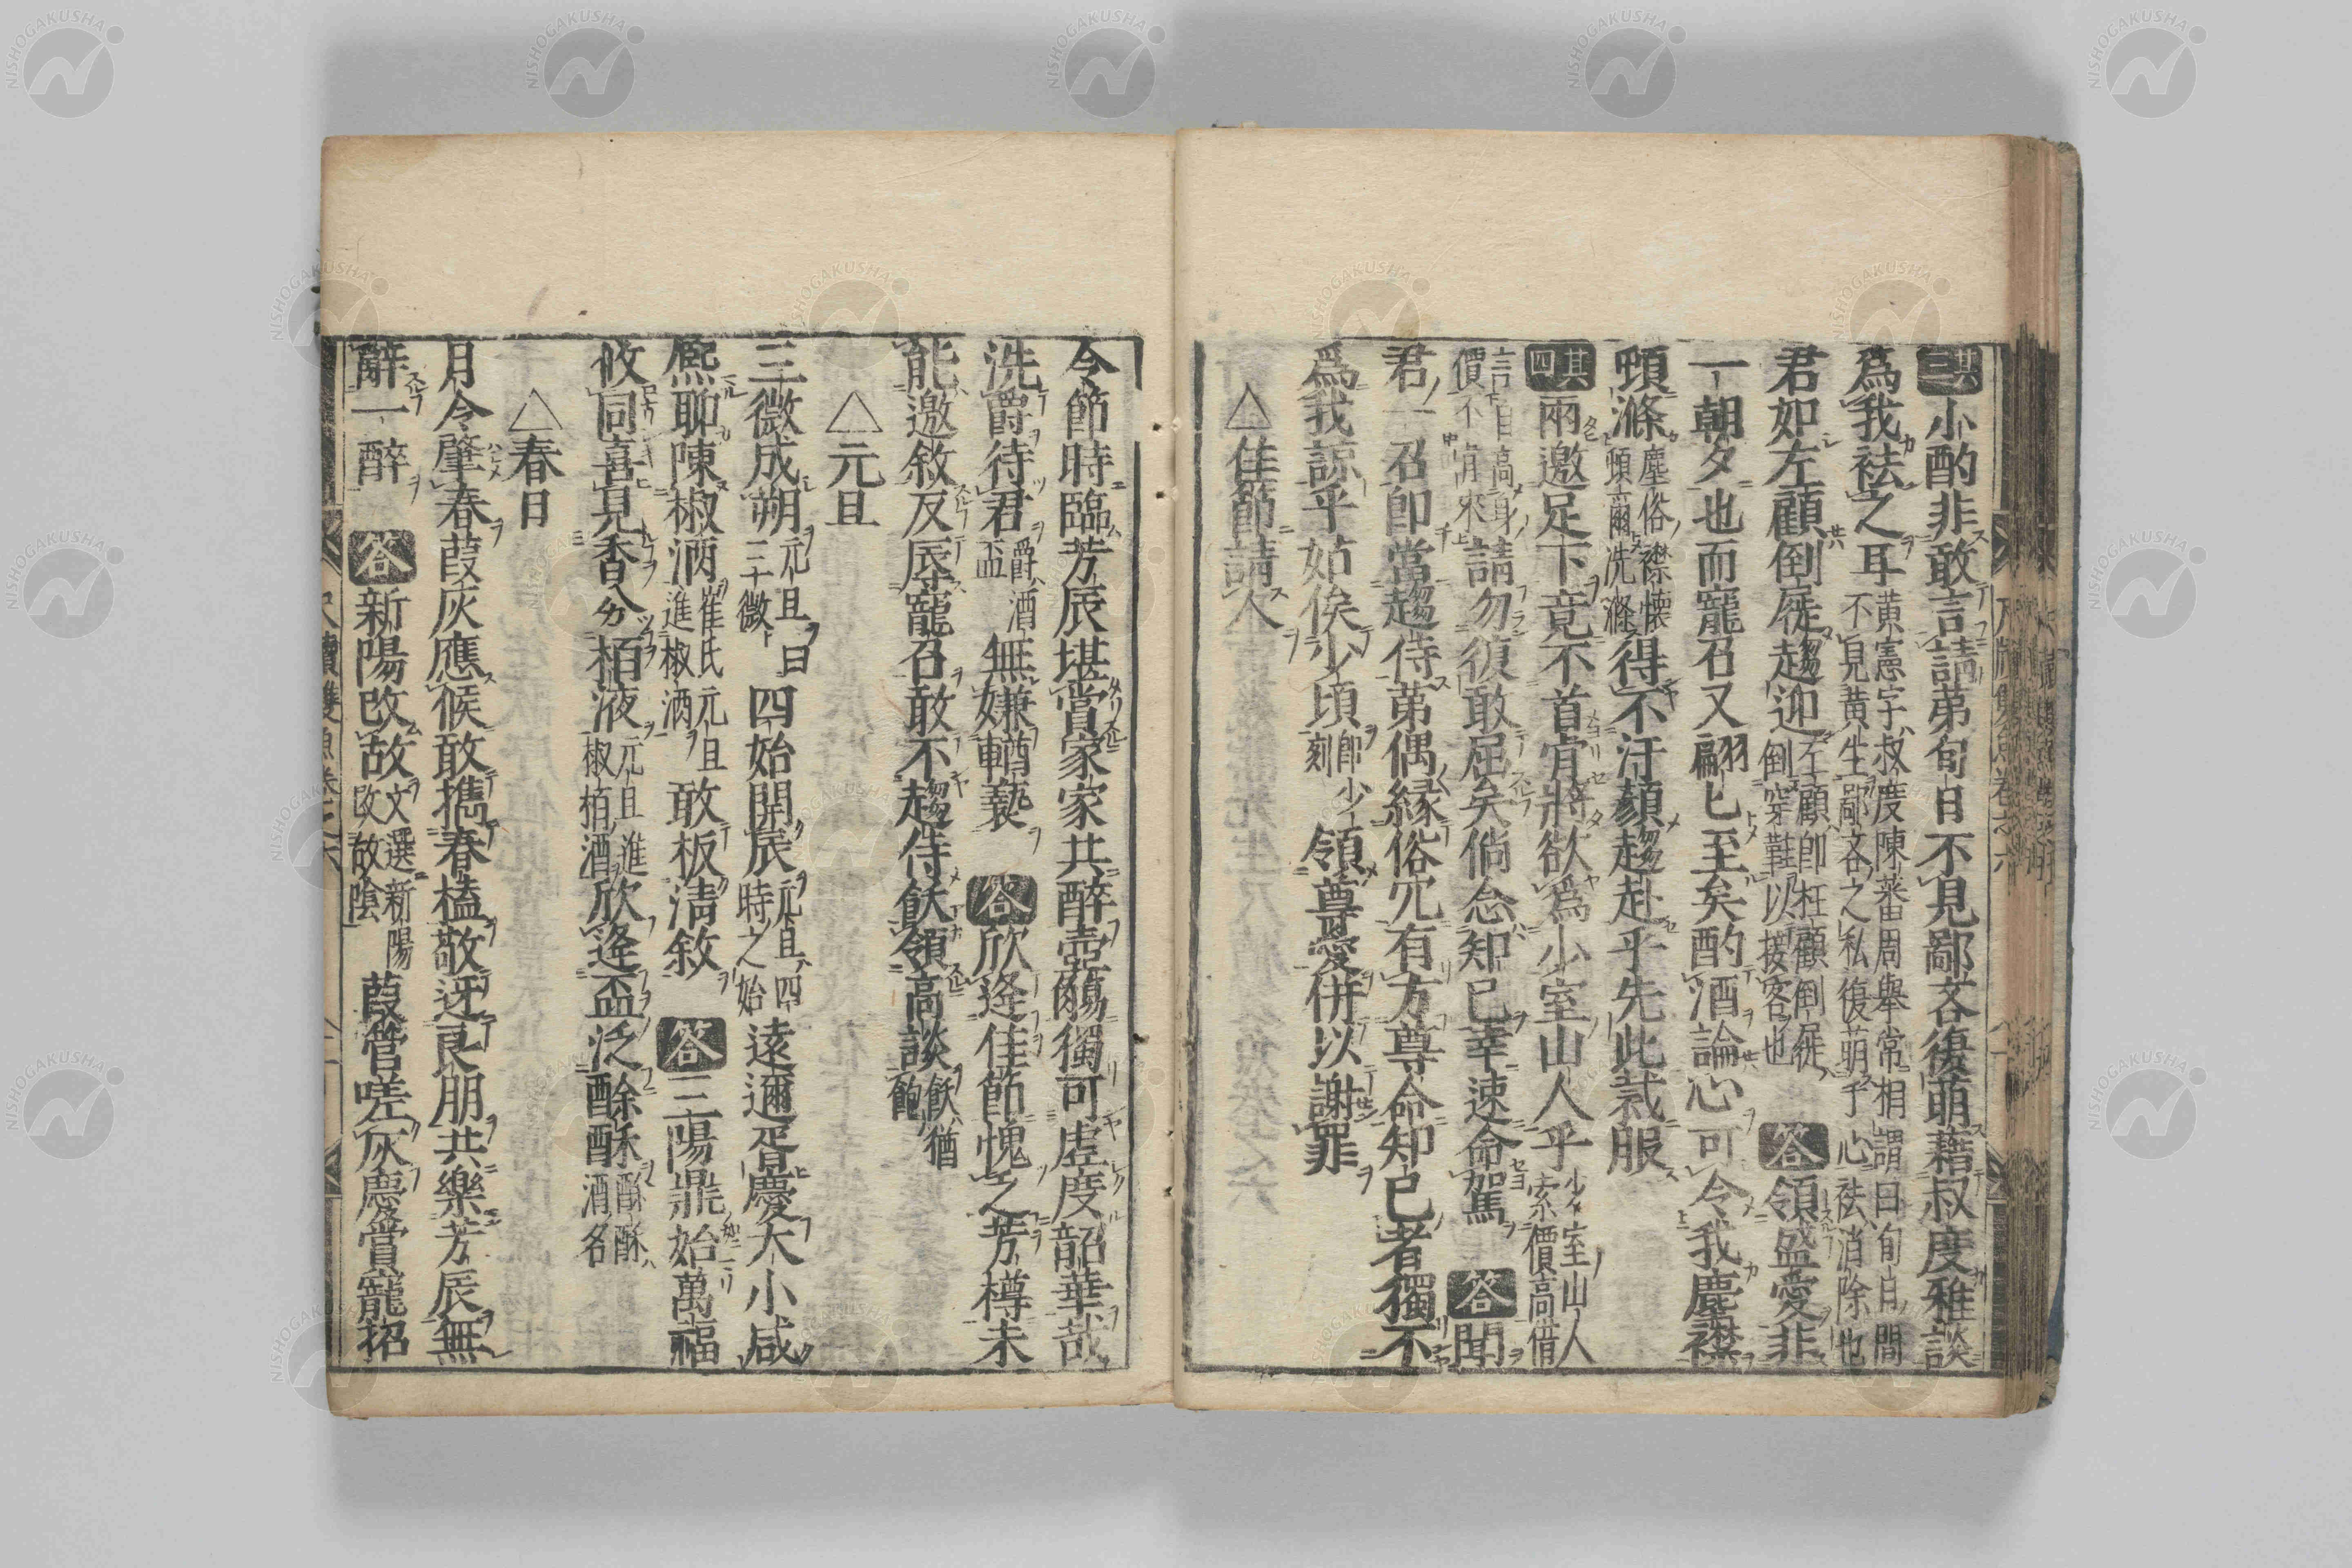 其三 小酌非敢言請苐旬日不見鄙吝復萌藉叔度雅談
為我袪之耳 黃憲字叔度陳蕃周舉常相謂曰旬日間不見黃生鄙吝之私復萌乎心袪消除也
君如左顧倒屣趨迎 左顧即枉顧倒屣倒穿鞋以接客也 答 領盛愛非
一朝夕也而寵召又翩匕至矣酌酒論心可令我塵襟
頓滌 塵俗襟懷頓爾洗滌 得不汗顏趨赴乎先此裁服
其四 兩邀足下竟不首肯將欲為小室山人乎 少室山人索價高借
言自高身價不肯來 請勿復敢屈矣倘念知己幸速命駕 答 聞
君一召即當趨侍苐偶緣俗冗有方尊命知己者獨不
爲我諒乎姑俟少頃 即少刻 領尊愛併以謝罪
△佳節請人
今節時臨芳辰堪賞家家共醉壺觴獨可虛度韶華哉
洗爵待君 爵酒盃 無嫌輶褻 答 欣逢佳節愧之芳樽未
能邀敘反辱寵召敢不趨侍飫領高談 飫猶飽
△元旦
三微成朔 元旦曰三微 四始開辰 元旦四時之始 遠邇胥慶大小咸
熈聊陳椒酒 崔氏元旦進椒酒 敢板淸敘 答 三陽鼎始萬福
攸同喜見香分栢液 元旦進椒栢酒 欣逢盃泛酴酥 酴酥酒名
△春日
月令肇春葭灰應候敢攜春榼敬迓良朋共樂芳辰無
辭一醉 答 新陽改故 文選新陽改故陰 葭管嗟灰慶賞寵招
NISHOGAKUSHA